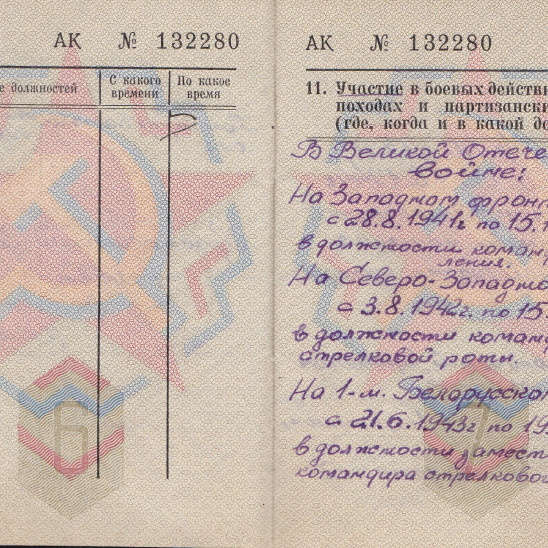 АК № 132280
е должностей
С какого времени
По какое время
6
АК № 132280
11. Участие в боевых действи
походах и партизански
(где, когда и в какой до
В Великой Отече
войне:
На Западном фронт
с 28.8.1941г по 15.1
в должности команд
ления.
На Северо-Западно
с 3.8.1942г. по 15.
в должности команд
стрелковой роты.
На 1-м. Белорусском
с 21.6.1943г по 19
в должности замест
командира стрелковой
7